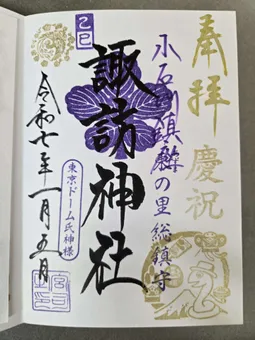 奉拝 慶祝
小石川鎮護の里総鎮守
諏訪神社
乙巳
東京ドーム氏神様
令和七年一月五日